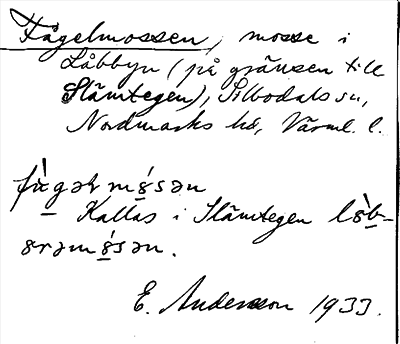 Fågelmossen, mosse i
Låbbyn (på gränsen till
Slämtegen), Silbodals sn,
Nordmarks hd, Värml. l.
fù̀gəɫmǫ́sən
Kallas i Slämtegen lǫ̀b-
ərəmǫ́sən.
E. Andersson 1933.